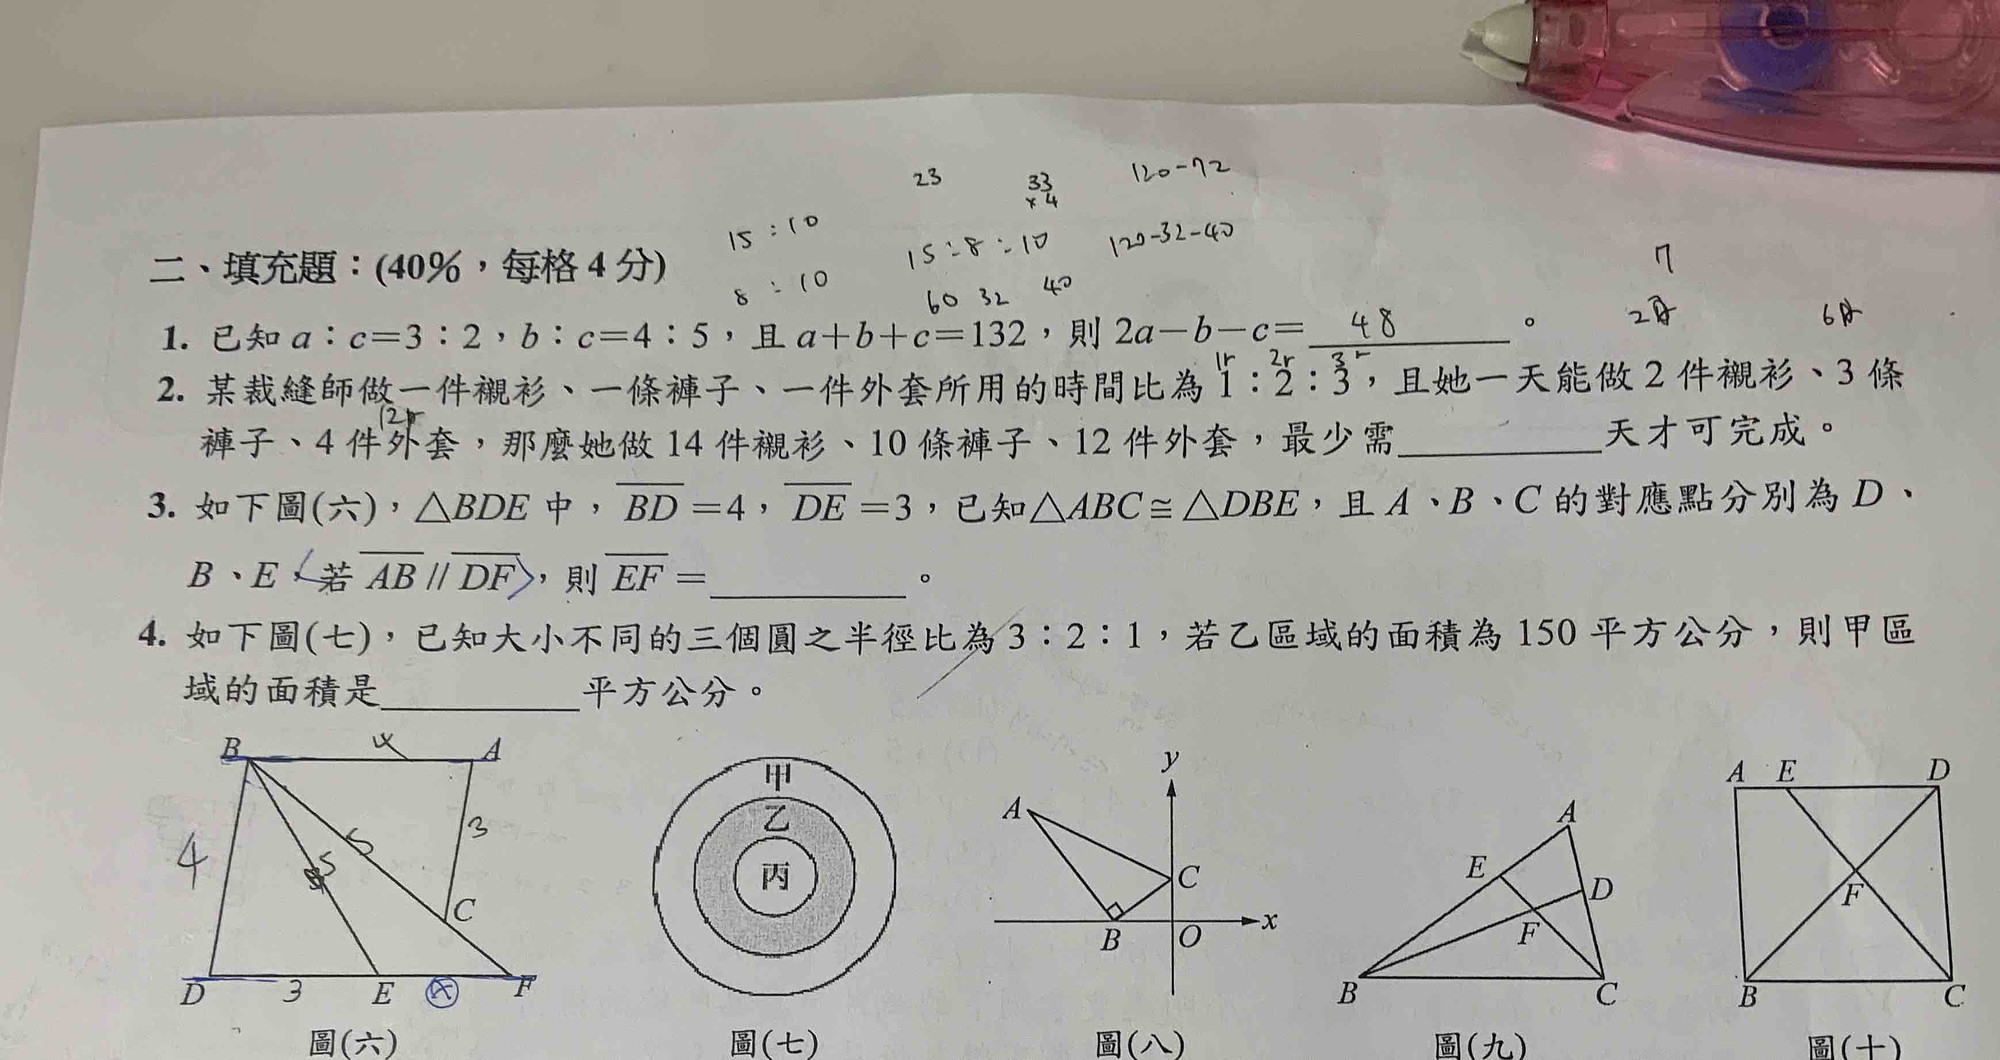 23
33
×4
120-72
15:10
15:8:10
120-32-40
二、填充題：(40%，每格 4 分)
8:10
60 32 40
7
1. 已知 a：c=3：2，b：c=4：5，且 a+b+c=132，則 2a-b-c= 48 。
2. 某裁縫師做一件襯衫、一條褲子、一件外套所用的時間比為 1：2：3，且她一天能做 2 件襯衫、3 條
褲子、4 件外套，那麼她做 14 件襯衫、10 條褲子、12 件外套，最少需＿＿＿＿天才可完成。
3. 如下圖(六)，△BDE 中，BD=4，DE=3，已知△ABC≅△DBE，且 A、B、C 的對應點分別為 D、
B、E，若 AB // DF，則 EF=＿＿＿＿。
4. 如下圖(七)，已知大小不同的三個圓之半徑比為 3：2：1，若乙區域的面積為 150 平方公分，則甲區
域的面積是＿＿＿＿平方公分。
B 4 A
4 5 5 3
C
D 3 E x F
圖(六)
甲
乙
丙
圖(七)
y
A
C
B O x
圖(八)
A
E
D
F
B C
圖(九)
A E D
F
B C
圖(十)